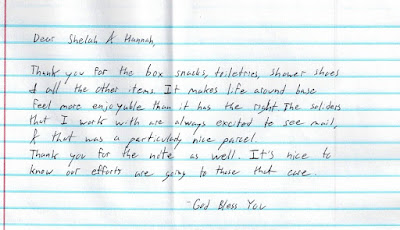 Dear Shelah & Hannah,
Thank you for the box snacks, toiletries, shower shoes
& all the other items. It makes life around base
feel more enjoyable than it has the right The soliders
that I work with are always excited to see mail,
& that was a particularly nice parcel.
Thank you for the note as well. It's nice to
know our efforts are going to those that care.
-God Bless You